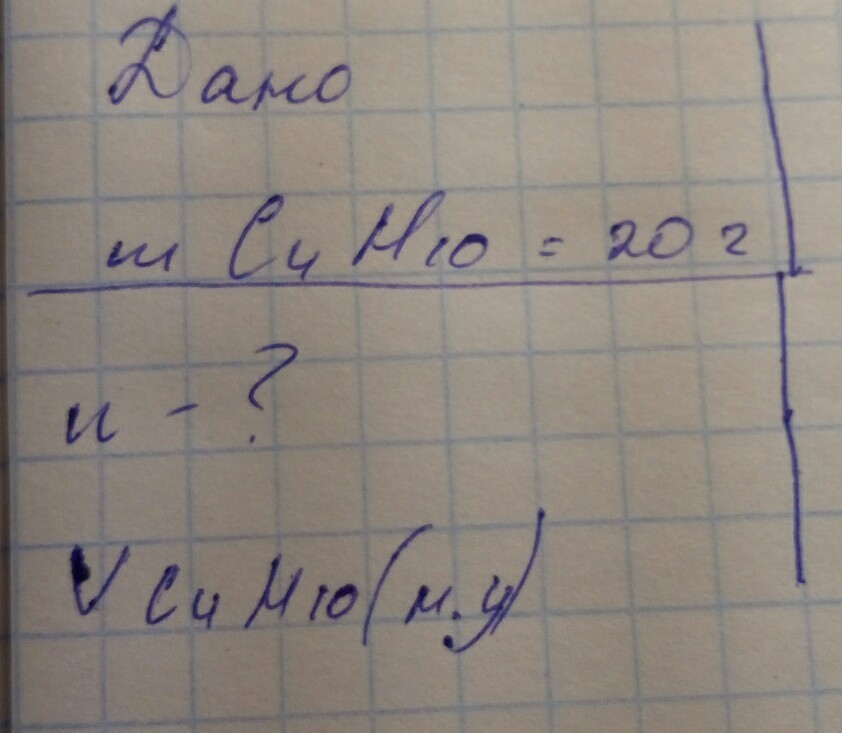 Дано
m C₄H₁₀ = 20 г
n - ?
V C₄H₁₀ (н.у)